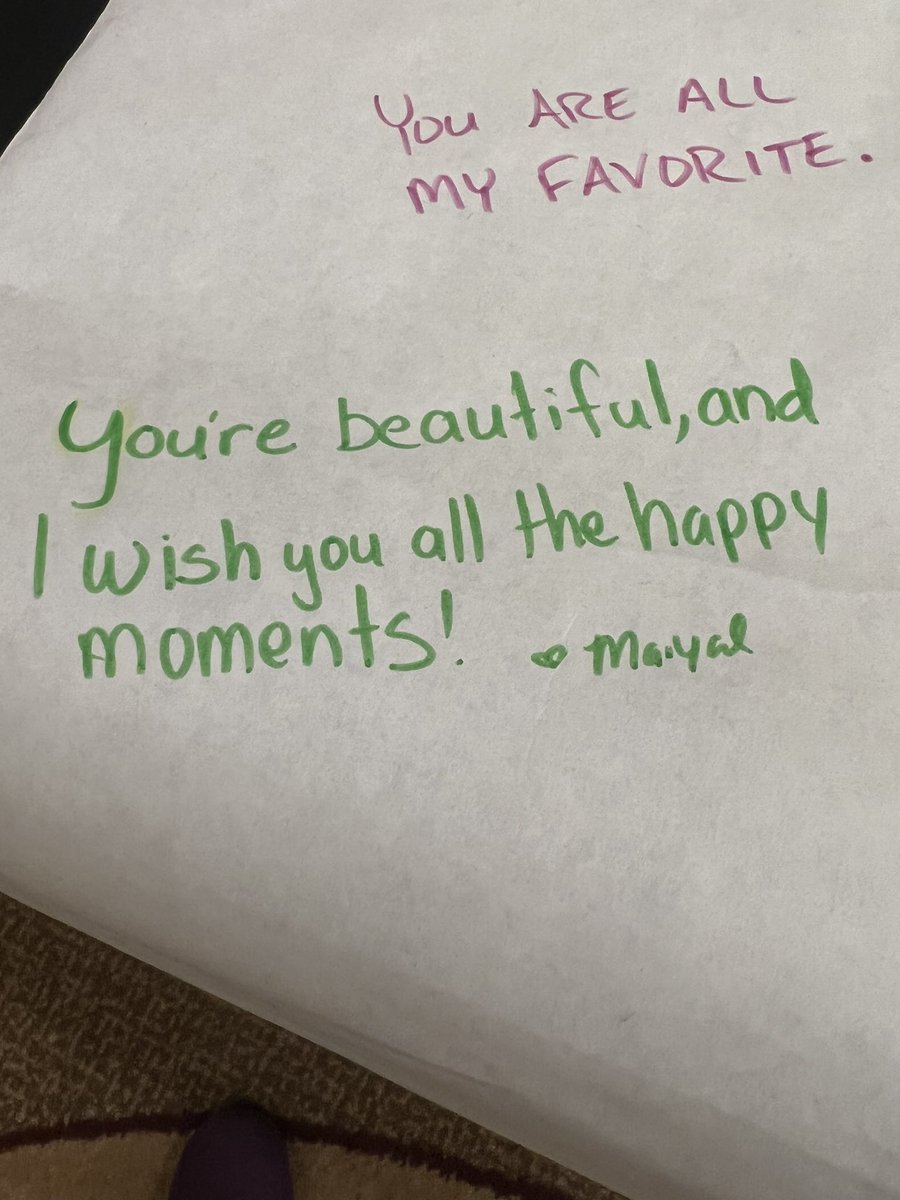 YOU ARE ALL
MY FAVORITE.
You're beautiful, and
I wish you all the happy
moments!